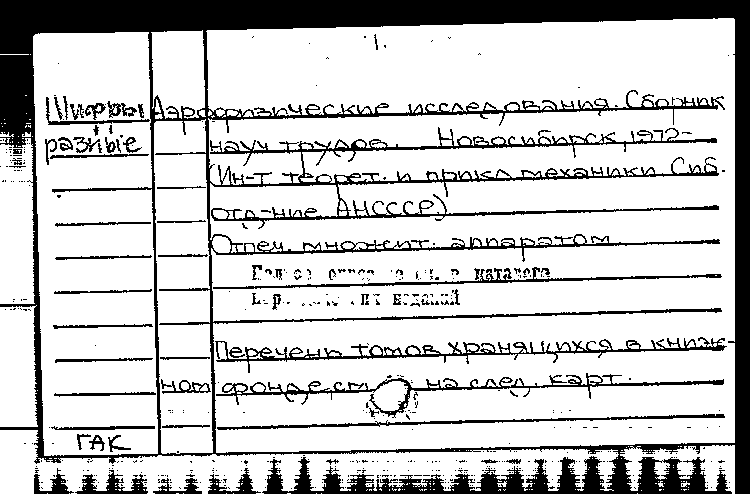 1.
Шифры Аэрофизические исследования. Сборник
разные науч трудов. Новосибирск, 1972-
(Ин-т теорет. и прикл механики Сиб.
отд-ние АНСССР)
Отпеч. множит. аппаратом
см. в каталоге
изданий
Перечень томов, хранящихся в книж-
ном фонде, см на след. карт.
ГАК